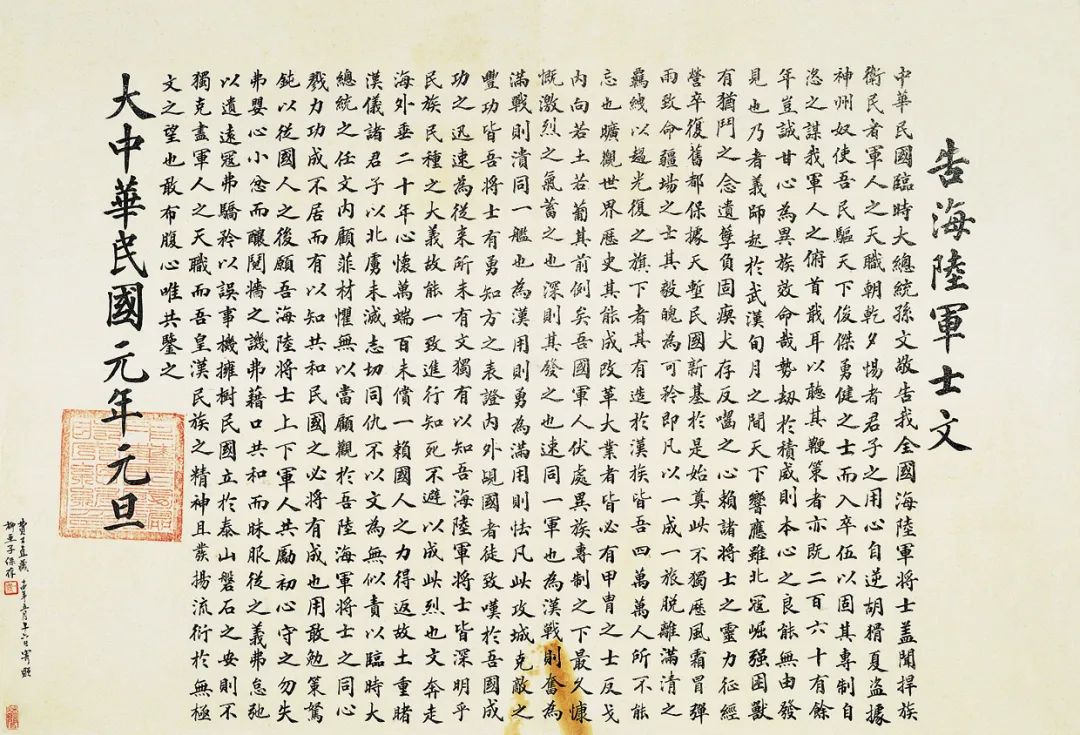 告海陸軍士文
中華民國臨時大總統孫文敬告我全國海陸軍將士蓋聞捍族
衛民者軍人之天職朝乾夕惕者君子之用心自逆胡猾夏盜據
神州奴使吾民驅天下俊傑勇健之士而入卒伍以固其專制自
恣之謀我軍人之俯首戢耳以聽其鞭策者亦既二百六十有餘
年豈誠甘心為異族效命哉勢劫於積威則本心之良能無由發
見也乃者義師起於武漢旬月之間天下響應雖北寇崛强困獸
有猶鬥之念遺孽負固瘈犬存反噬之心賴諸將士之靈力征經
營卒復舊都保據天塹民國新基於是始奠此不獨歷風霜冒彈
雨致命疆場之士其毅魄為可矜即凡以一成一旅脫離滿清之
羈絏以趨光復之旗下者其有造於漢族皆吾四萬萬人所不能
忘也曠觀世界歷史其能成改革大業者皆必有甲冑之士反戈
內向若土若葡其前例矣吾國軍人伏處異族專制之下最久慷
慨激烈之氣蓄之也深則其發之也速同一軍也為漢戰則奮為
滿戰則潰同一艦也為漢用則勇為滿用則怯凡此攻城克敵之
豐功皆吾將士有勇知方之表證內外覘國者徒致嘆於吾國成
功之迅速為從來所未有文獨有以知吾海陸軍將士皆深明乎
民族民種之大義故能一致進行知死不避以成此烈也文奔走
海外垂二十年心懷萬端百未償一賴國人之力得返故土重睹
漢儀諸君子以北虜未滅志切同仇不以文為無似責以臨時大
總統之任文內顧菲材懼無以當顧觀於吾陸海軍將士之同心
戮力功成不居而有以知共和民國之必將有成也用敢勉策駑
鈍以從國人之後願吾海陸將士上下軍人共勵初心守之勿失
弗嬰心小忿而釀鬩牆之譏弗藉口共和而昧服從之義弗怠弛
以遺遠寇弗驕矜以誤事機擁樹民國立於泰山磐石之安則不
獨克盡軍人之天職而吾皇漢民族之精神且發揚流衍於無極
文之望也敢布腹心唯共鑒之
大中華民國元年元旦
費公直藏
柳亞子保存